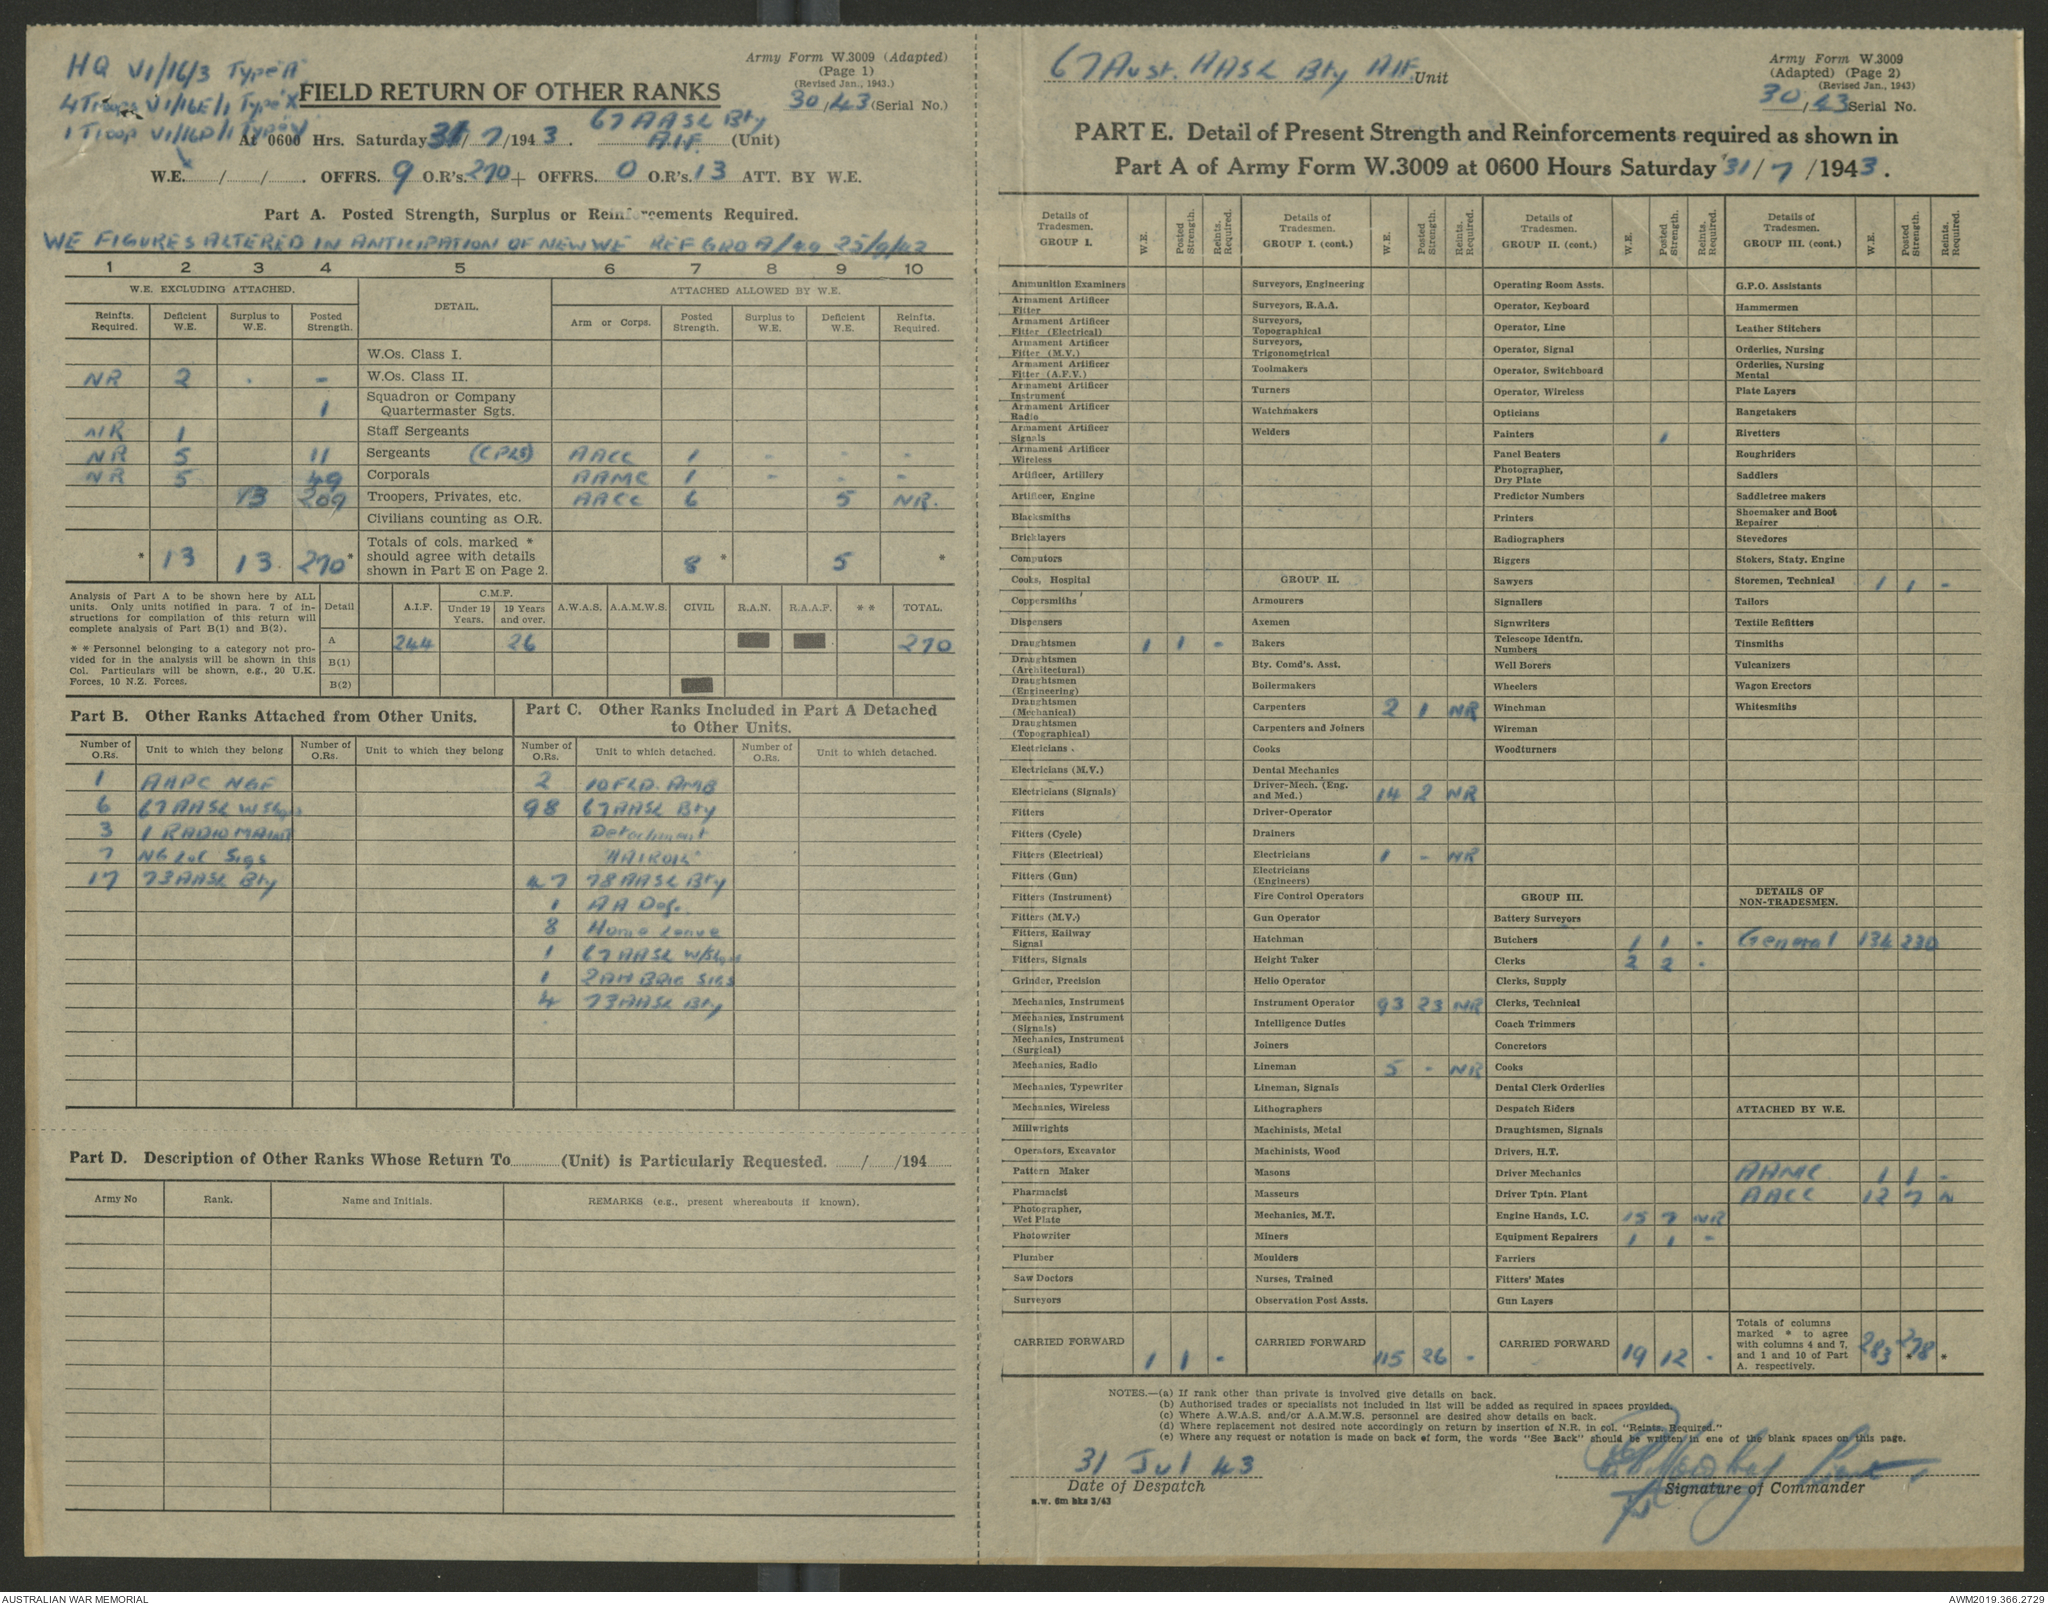 HQ VI/16/3 Type A
4 Troops VI/16E/1 Type X
1 Troop VI/16D/1 Type V
Army Form W.3009 (Adapted)
(Page 1)
(Revised Jan., 1943.)
30/43 (Serial No.)
FIELD RETURN OF OTHER RANKS
67 AASL Bty
At 0600 Hrs. Saturday 31/7/1943. A.I.F. (Unit)
W.E. / / . OFFRS. 9 O.R's. 270 + OFFRS. 0 O.R's. 13 ATT. BY W.E.
Part A. Posted Strength, Surplus or Reinforcements Required.
WE FIGURES ALTERED IN ANTICIPATION OF NEW WE REF GRO A/
1 2 3 4 5 6 7 8 9 10
W.E. EXCLUDING ATTACHED. DETAIL. ATTACHED ALLOWED BY W.E.
Reinfts. Required. Deficient W.E. Surplus to W.E. Posted Strength. Arm or Corps. Posted Strength. Surplus to W.E. Deficient W.E. Reinfts. Required.
W.Os. Class I.
NR 2 . - W.Os. Class II.
1 Squadron or Company Quartermaster Sgts.
NR 1 Staff Sergeants
NR 5 11 Sergeants (CPLS) AACC 1 - - -
NR 5 49 Corporals AAMC 1 - - -
13 209 Troopers, Privates, etc. AACC 6 5 NR.
Civilians counting as O.R.
* 13 13 270 * Totals of cols. marked * should agree with details shown in Part E on Page 2. 8 * 5 *
Analysis of Part A to be shown here by ALL units. Only units notified in para. 7 of instructions for compilation of this return will complete analysis of Part B(1) and B(2).
* * Personnel belonging to a category not provided for in the analysis will be shown in this Col. Particulars will be shown, e.g., 20 U.K. Forces, 10 N.Z. Forces.
Detail A.I.F. C.M.F. Under 19 Years. 19 Years and over. A.W.A.S. A.A.M.W.S. CIVIL R.A.N. R.A.A.F. * * TOTAL.
A 244 26 270
B(1)
B(2)
Part B. Other Ranks Attached from Other Units.
Number of O.Rs. Unit to which they belong Number of O.Rs. Unit to which they belong
1 AAPC NGF
6 67 AASL W/Shops
3 1 RADIO MAINT
7 NG LofC Sigs
17 73 AASL Bty
Part C. Other Ranks Included in Part A Detached to Other Units.
Number of O.Rs. Unit to which detached. Number of O.Rs. Unit to which detached.
2 10 FLD. AMB
98 67 AASL Bty
Detachment
"HAIROIL"
47 78 AASL Bty
1 AA Def.
8 Home Leave
1 67 AASL W/Shops
1 2 AA BDE SIGS
4 73 AASL Bty
Part D. Description of Other Ranks Whose Return To (Unit) is Particularly Requested. / /194
Army No Rank. Name and Initials. REMARKS (e.g., present whereabouts if known).
67 Aust. AASL Bty AIF. Unit
Army Form W.3009
(Adapted) (Page 2)
(Revised Jan., 1943)
30/43 Serial No.
PART E. Detail of Present Strength and Reinforcements required as shown in
Part A of Army Form W.3009 at 0600 Hours Saturday 31/7/1943.
Details of Tradesmen. GROUP I. W.E. Posted Strength. Reints. Required.
Ammunition Examiners
Armament Artificer Fitter
Armament Artificer Fitter (Electrical)
Armament Artificer Fitter (M.V.)
Armament Artificer Fitter (A.F.V.)
Armament Artificer Instrument
Armament Artificer Radio
Armament Artificer Signals
Armament Artificer Wireless
Artificer, Artillery
Artificer, Engine
Blacksmiths
Bricklayers
Computors
Cooks, Hospital
Coppersmiths
Dispensers
Draughtsmen 1 1 -
Draughtsmen (Architectural)
Draughtsmen (Engineering)
Draughtsmen (Mechanical)
Draughtsmen (Topographical)
Electricians
Electricians (M.V.)
Electricians (Signals)
Fitters
Fitters (Cycle)
Fitters (Electrical)
Fitters (Gun)
Fitters (Instrument)
Fitters (M.V.)
Fitters, Railway Signal
Fitters, Signals
Grinder, Precision
Mechanics, Instrument
Mechanics, Instrument (Signals)
Mechanics, Instrument (Surgical)
Mechanics, Radio
Mechanics, Typewriter
Mechanics, Wireless
Millwrights
Operators, Excavator
Pattern Maker
Pharmacist
Photographer, Wet Plate
Photowriter
Plumber
Saw Doctors
Surveyors
CARRIED FORWARD 1 1 -
Details of Tradesmen. GROUP I. (cont.) W.E. Posted Strength. Reints. Required.
Surveyors, Engineering
Surveyors, R.A.A.
Surveyors, Topographical
Surveyors, Trigonometrical
Toolmakers
Turners
Watchmakers
Welders
GROUP II.
Armourers
Axemen
Bakers
Bty. Comd's. Asst.
Boilermakers
Carpenters 2 1 NR
Carpenters and Joiners
Cooks
Dental Mechanics
Driver-Mech. (Eng. and Med.) 14 2 NR
Driver-Operator
Drainers
Electricians 1 - NR
Electricians (Engineers)
Fire Control Operators
Gun Operator
Hatchman
Height Taker
Helio Operator
Instrument Operator 93 23 NR
Intelligence Duties
Joiners
Lineman 5 - NR
Lineman, Signals
Lithographers
Machinists, Metal
Machinists, Wood
Masons
Masseurs
Mechanics, M.T.
Miners
Moulders
Nurses, Trained
Observation Post Assts.
CARRIED FORWARD 115 26 -
Details of Tradesmen. GROUP II. (cont.) W.E. Posted Strength. Reints. Required.
Operating Room Assts.
Operator, Keyboard
Operator, Line
Operator, Signal
Operator, Switchboard
Operator, Wireless
Opticians
Painters 1
Panel Beaters
Photographer, Dry Plate
Predictor Numbers
Printers
Radiographers
Riggers
Sawyers
Signallers
Signwriters
Telescope Identfn. Numbers
Well Borers
Wheelers
Winchman
Wireman
Woodturners
GROUP III.
Battery Surveyors
Butchers 1 1 -
Clerks 2 2 -
Clerks, Supply
Clerks, Technical
Coach Trimmers
Concretors
Cooks
Dental Clerk Orderlies
Despatch Riders
Draughtsmen, Signals
Drivers, H.T.
Driver Mechanics
Driver Tptn. Plant
Engine Hands, I.C. 15 7 NR
Equipment Repairers 1 1 -
Farriers
Fitters' Mates
Gun Layers
CARRIED FORWARD 19 12 -
Details of Tradesmen. GROUP III. (cont.) W.E. Posted Strength. Reints. Required.
G.P.O. Assistants
Hammermen
Leather Stitchers
Orderlies, Nursing
Orderlies, Nursing Mental
Plate Layers
Rangetakers
Rivetters
Roughriders
Saddlers
Saddletree makers
Shoemaker and Boot Repairer
Stevedores
Stokers, Staty. Engine
Storemen, Technical 1 1 -
Tailors
Textile Refitters
Tinsmiths
Vulcanizers
Wagon Erectors
Whitesmiths
DETAILS OF NON-TRADESMEN.
General 134 230
ATTACHED BY W.E.
AAMC 1 1 -
AACC 12 7 N
Totals of columns marked * to agree with columns 4 and 7, and 1 and 10 of Part A. respectively. 283 278
NOTES.—(a) If rank other than private is involved give details on back.
(b) Authorised trades or specialists not included in list will be added as required in spaces provided.
(c) Where A.W.A.S. and/or A.A.M.W.S. personnel are desired show details on back.
(d) Where replacement not desired note accordingly on return by insertion of N.R. in col. "Reints. Required."
(e) Where any request or notation is made on back of form, the words "See Back" should be written in one of the blank spaces on this page.
31 Jul 43
Date of Despatch
Signature of Commander
a.w. 6m bks 3/43
AUSTRALIAN WAR MEMORIAL
AWM2019.366.2729